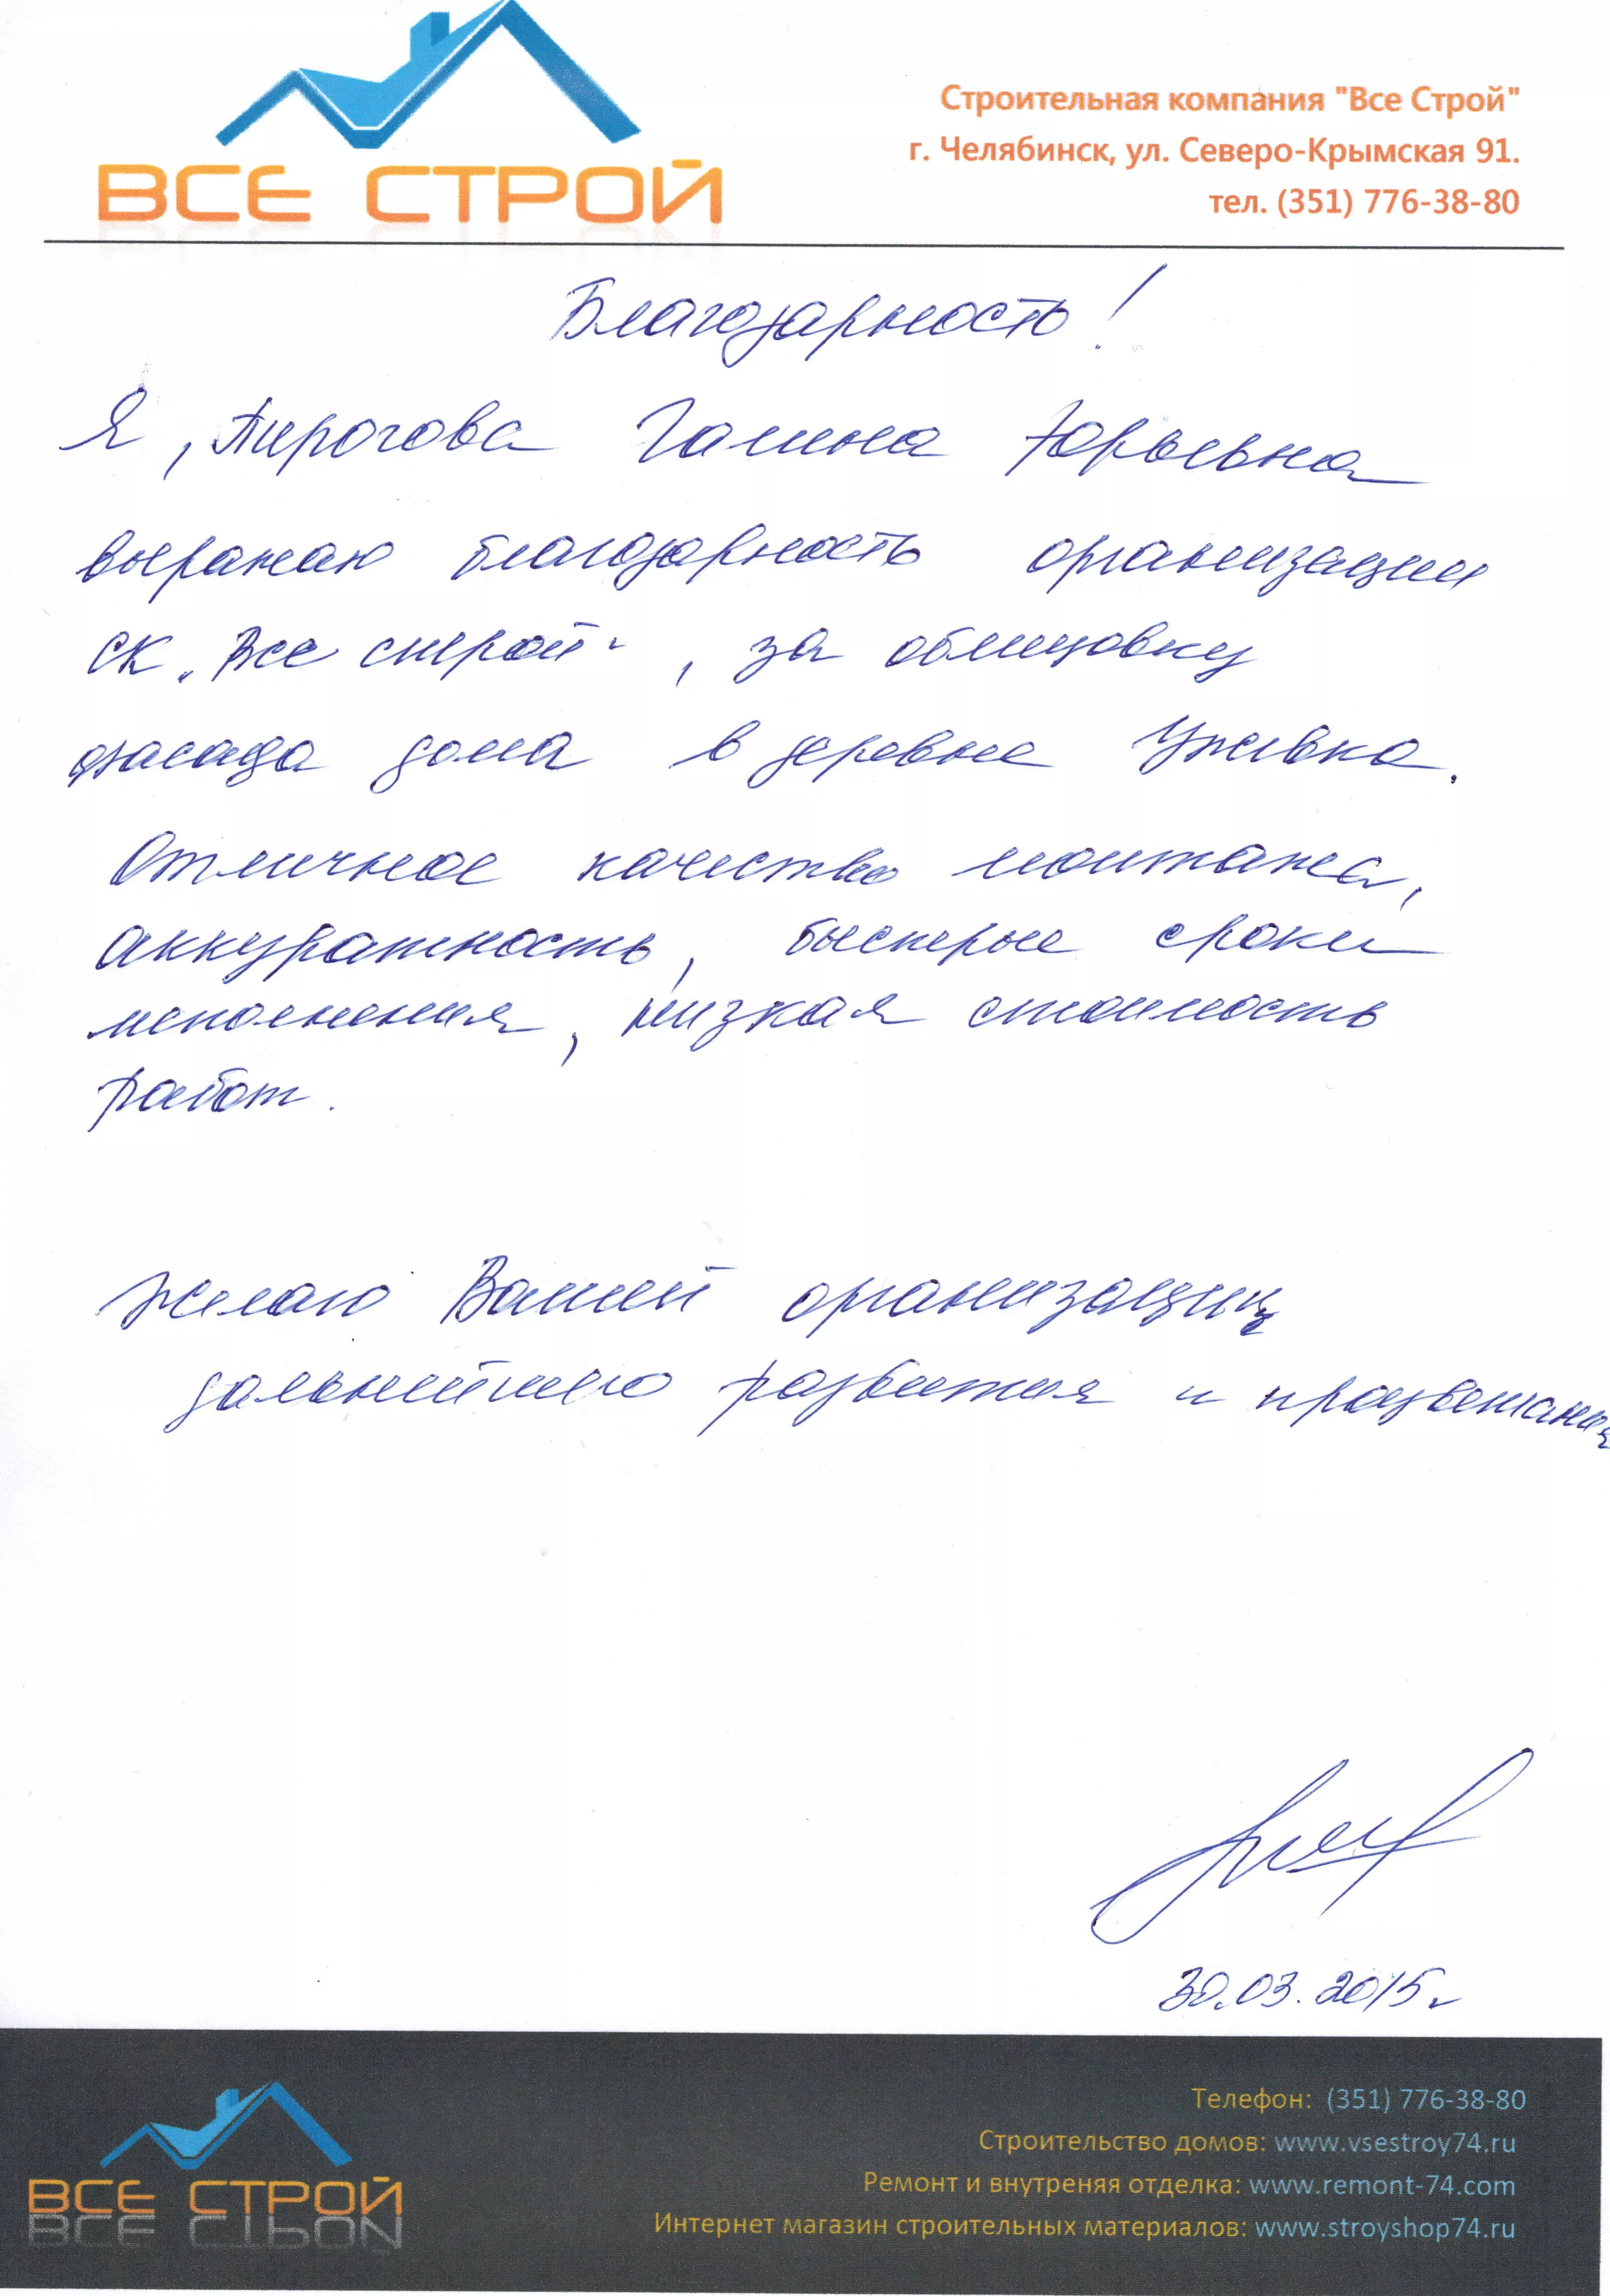 ВСЕ СТРОЙ
Строительная компания "Все Строй"
г. Челябинск, ул. Северо-Крымская 91.
тел. (351) 776-38-80
Благодарность!
Я, Пирогова Галина Юрьевна
выражаю благодарность организации
СК "Все строй", за облицовку
фасада дома в деревне Ужевка.
Отличное качество монтажа,
аккуратность, быстрые сроки
исполнения, низкая стоимость
работ.
Желаю Вашей организации
дальнейшего развития и процветания
30.03.2015г
ВСЕ СТРОЙ
Телефон: (351) 776-38-80
Строительство домов: www.vsestroy74.ru
Ремонт и внутреняя отделка: www.remont-74.com
Интернет магазин строительных материалов: www.stroyshop74.ru